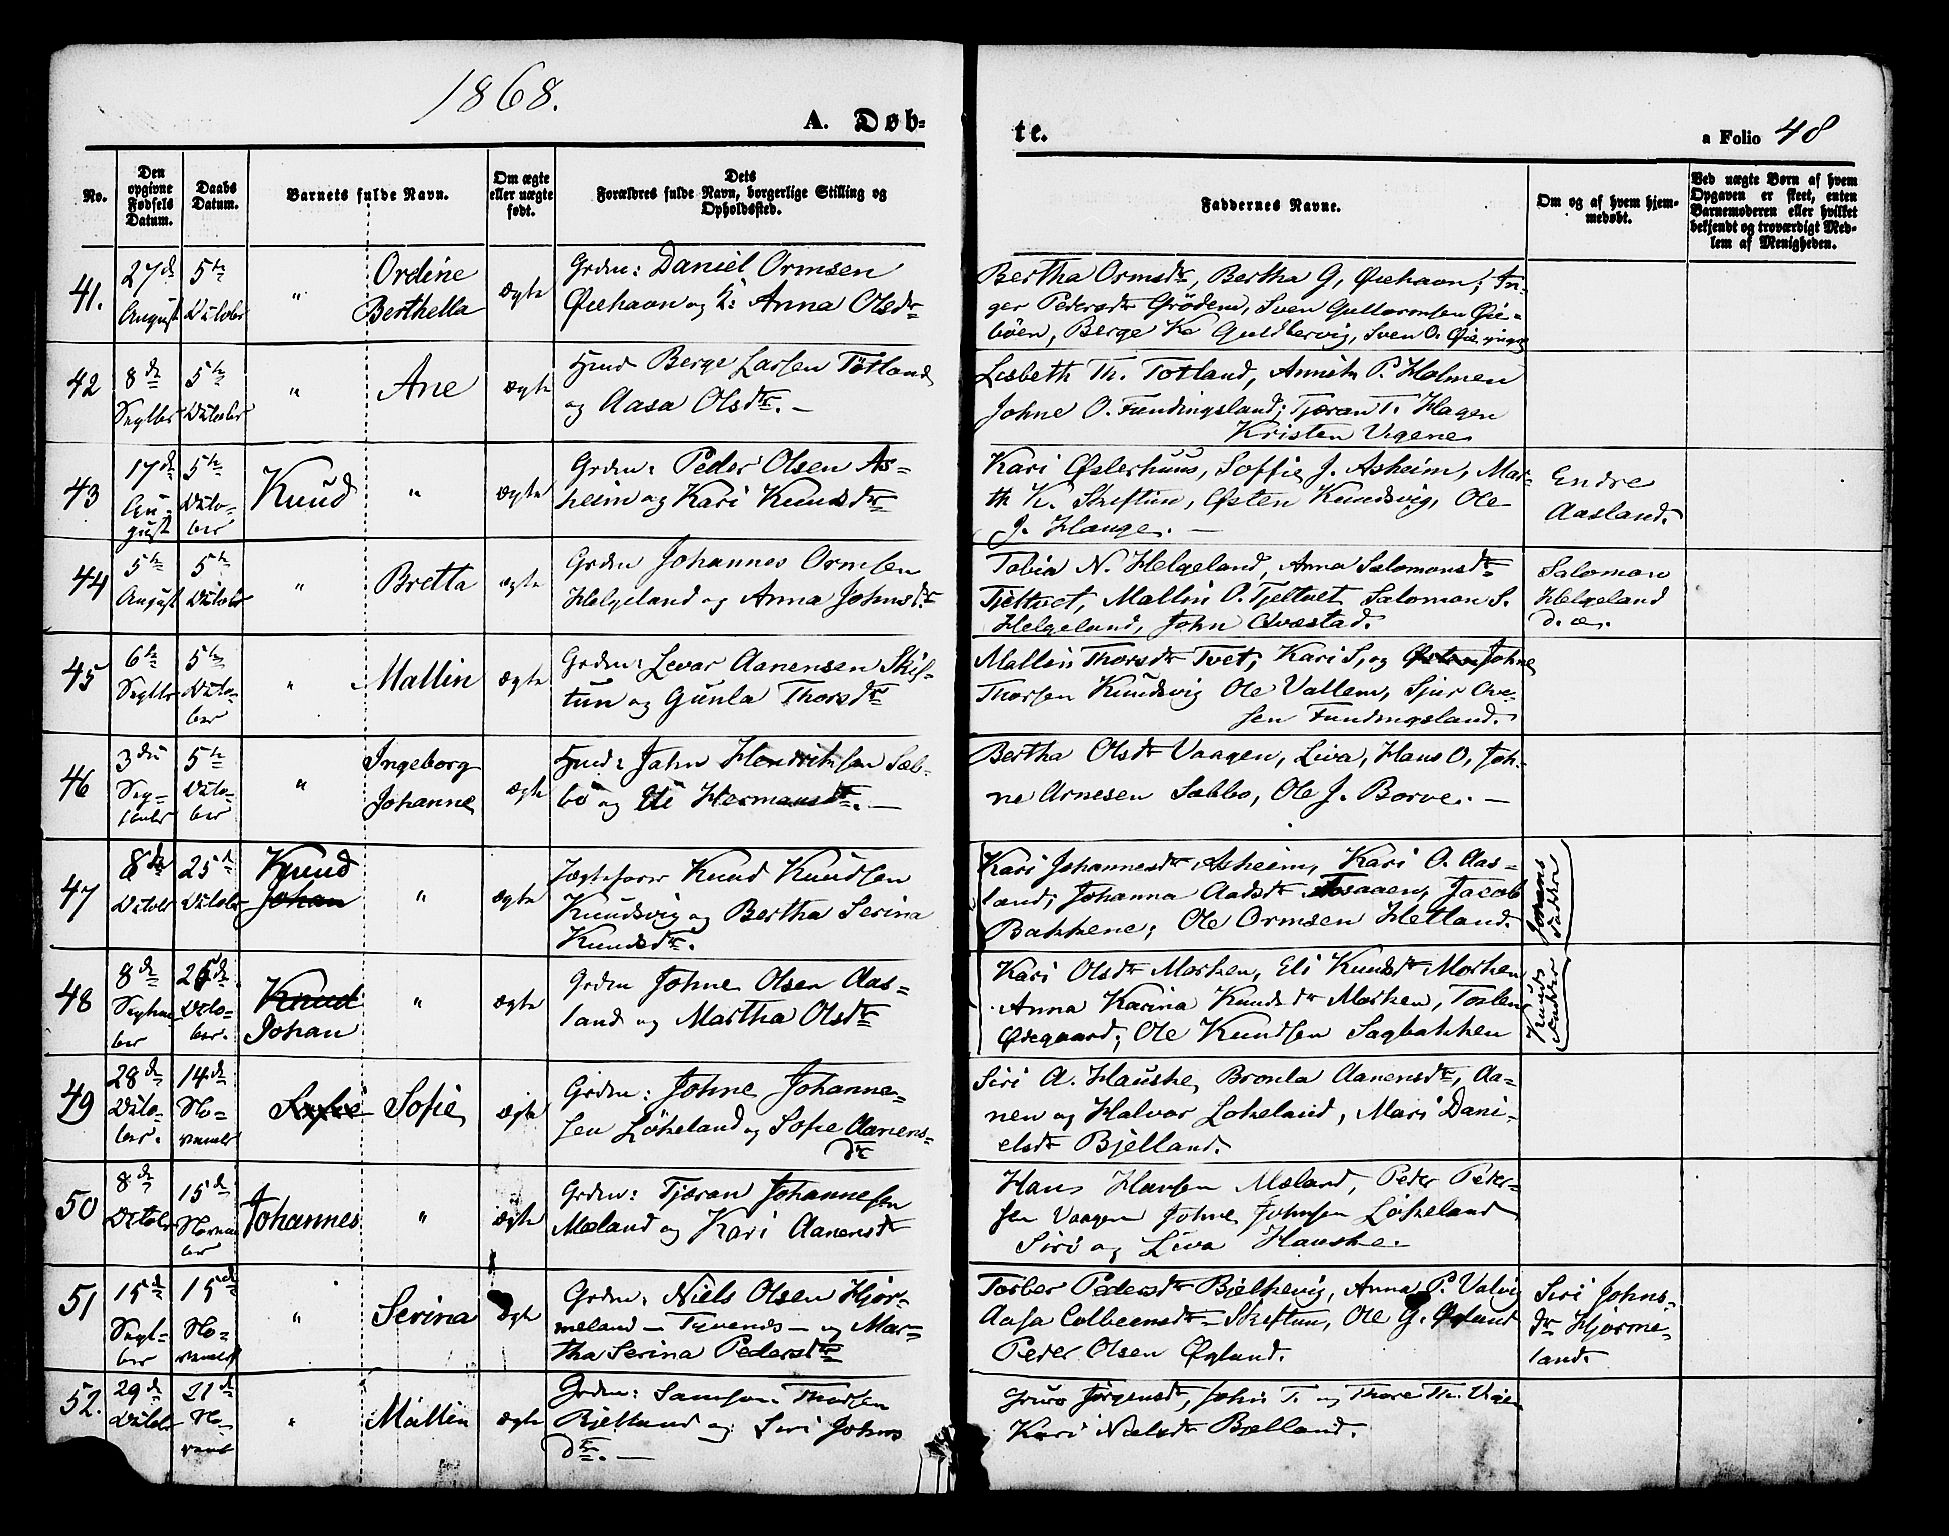 1868.
A. Døb-
te.
a Folio 48
No.
Den
opgivne
Fødsels
Datum.
Daabs
Datum.
Barnets fulde Navn.
Om ægte
eller nægte
født.
Dets
Forældres fulde Navn, borgerlige Stilling og
Opholdssted.
Faddernes Navne.
Om og af hvem hjem-
medøbt.
Ved nægte Børn af hvem
Opgaven er skeet, enten
Barnemoderen eller hvilket
bekjendt og troværdigt Med-
lem af Menigheden.
41.
27de
August
5te
October
"
Ordine
Berthella
ægte
Grdm: Daniel Ormsen
Øiehavn og K: Anna Olsdr
Bertha Ormsdtr, Bertha G, Øiehavn; In-
ger Pedersdtr Grödem, Sven Guttormsen Øie-
böen, Berge K. Guldbervig, Sven O.
42
8de
Septbr
5te
October
"
Ane
ægte
Hmd Berge Larsen Tötland
og Aasa Olsdtr. —
Lisbeth Th. Totland, P. Holmen
Johne O. Fundingsland; Tjæran T. Hagen
Kristen Vigene
43
17de
Au-
gust
5te
Octo-
ber
Knud
"
ægte
Grdm: Peder Olsen As-
heim og Kari Knudsdtr
Kari Østerhuus, Soffie J. Asheim, Mar-
th K. Skiftun, Østen Knudsvig, Ole
J. Hauge. —
Endre
Aasland.
44
5te
August
5te
October
"
Bretta
ægte
Grdm Johannes Ormsen
Helgeland og Anna Johnsdtr.
Tobia N. Helgeland, Anna Salomonsdtr
Tjeltvet, Mallin O. Tjeltvet Salomon S.
Helgeland, John Qvæstad.
Salomon
Helgeland
d. æ.
45
6te
Septbr
5te
Octo-
ber
"
Mallin
ægte
Grdm: Levar Aanensen Skif-
tun og Gunla Thorsdtr
Mallin Thorsdtr Tvet, Kari S, og Østen Johne
Thorsen Knudsvig Ole Vallem, Sjur Ove-
sen Fundingsland.
46
3die
Sep-
tember
5te
Octo-
ber
"
Ingeborg
Johanne
ægte
Hmd: Jahn Hendriksen Sæb-
bö og Eli Hermansdtr. —
Bertha Olsdtr Vaagen, Liva, Hans O, Joh-
ne Arnesen Sæbbo, Ole J. Borve. —
47
8de
October
25de
October
Knud
Johan
"
ægte
Jægtefører Knud Knudsen
Knudsvig og Bertha Serina
Knudsdtr.
Kari Johannesdtr Asheim, Kari O. Aas-
land; Johanna Aadsdtr Aasaaen, Jacob
Bakkene; Ole Ormsen Hetland.
Johans
Faddere
48
8de
Septem
ber
25de
Octo-
ber.
Knud
Johan
"
ægte
Grdm Johne Olsen Aas-
land og Martha Olsdtr
Kari Olsdtr Morken, Eli Knudsdtr Morken
Anna Karina Knudsdtr Morken, Torlene
Ødegaard; Ole Knudsen Sagbakken
Knuds
Faddere
49
28de
Octo-
ber.
14de
No-
vember
Sofie
Sofie
ægte
Grdm: Johne Johanne-
sen Lökeland og Sofie Aanens-
dtr
Siri A. Hauske, Bronla Aanensdtr, Aa-
nen og Halvor Lokeland, Mari Dani-
elsdtr Bjelland.
50
8de
October
15de
Novem
ber
Johannes
"
ægte
Grdm: Tjæran Johannesen
Mæland og Kari Aanensdtr
Hans Hansen Mæland, Peder Peder-
sen Vaagen Johne Johnsen Lökeland
Siri og Liva Hauske.
51
15de
Septem-
ber
15de
No-
vember
"
Serina
ægte
Grdm: Niels Olsen Hjor-
meland — Tjvends — og Mar-
tha Serina Pedersdtr
Torber Pedersdtr Bjelkevig, Anna P. Valvig
Aasa Colbeensdtr Skiftun, Ole G. Øgland
Peder Olsen Øgland.
Siri Johns-
dtr Hjorme-
land.
52.
29de
October
21de
No-
vember
"
Mallin
ægte
Grdm: Samson Thorsen
Bjelland og Siri Johns
dtr. —
Guro Jörgensdtr, John T. og Thore Th. Vigen
Kari Nielsdtr Bjelland.